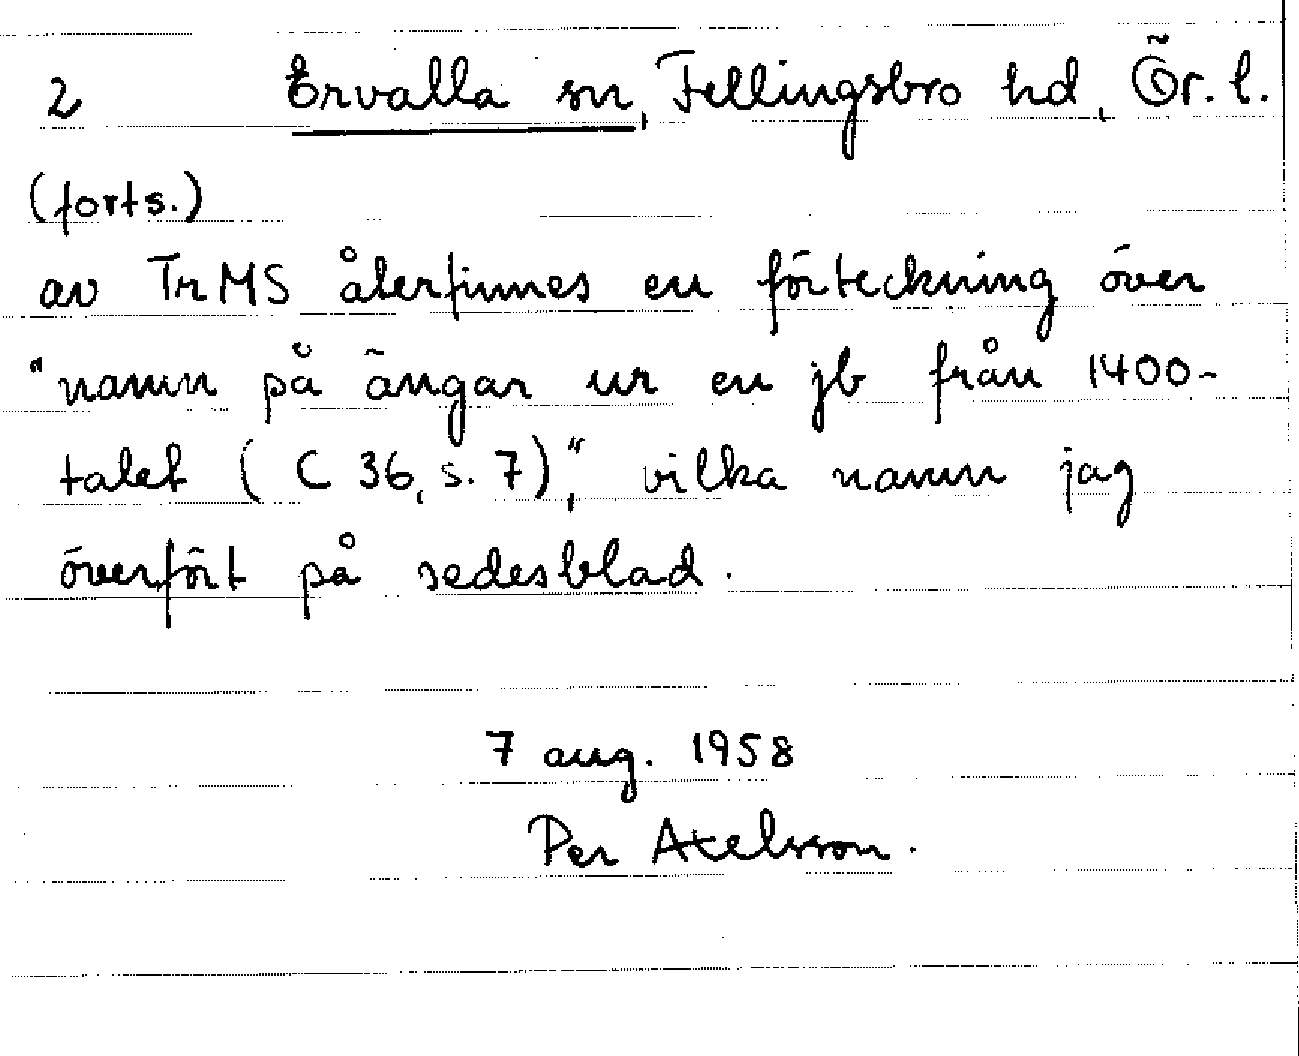 2 Ervalla sn, Fellingsbro hd, Ör. l.
(forts.)
av TrMS återfinnes en förteckning över
"namn på ängar ur en jb från 1400-
talet (C 36, s. 7)", vilka namn jag
överfört på sedesblad.
7 aug. 1958
Per Axelsson.